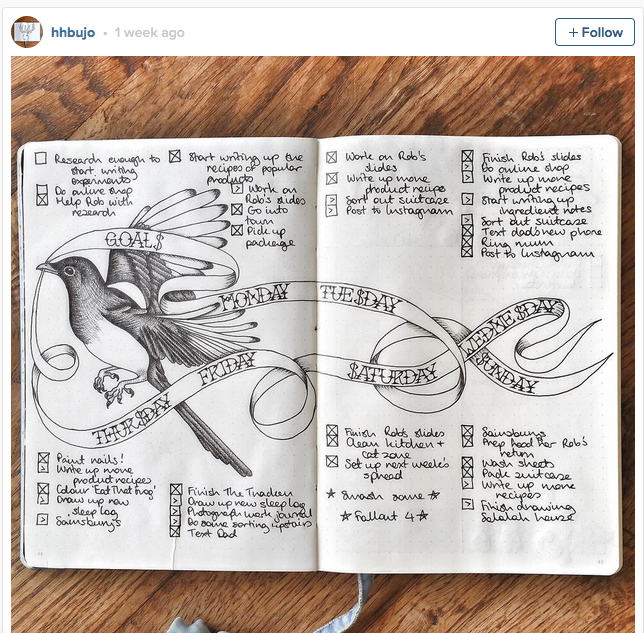 hhbujo • 1 week ago
+ Follow
Research enough to
start writing
experiments
Do online shop
Help Rob with
research
GOALS
Start writing up the
recipes of popular
products
Work on
Rob's slides
Go into
town
Pick up
package
MONDAY
Work on Rob's
slides
Write up more
product recipe
Sort out suitcase
Post to Instagram
TUESDAY
Finish Rob's slides
Do online shop
Write up more
product recipes
Start writing up
ingredient notes
Sort out suitcase
Text dad's new phone
Ring mum
Post to Instagram
WEDNESDAY
THURSDAY
Paint nails!
Write up more
product recipes
Colour 'Eat That Frog'
Draw up new
sleep log
Sainsbury's
FRIDAY
Finish The
Draw up new sleep log
Photograph work journal
Do some sorting upstairs
Text Dad
SATURDAY
Finish Rob's slides
Clean kitchen +
cat zone
Set up next week's
spread
Smash some
Fallout 4
SUNDAY
Sainsburys
Prep food for Rob's
return
Wash sheets
Pack suitcase
Write up more
recipes
Finish drawing
house